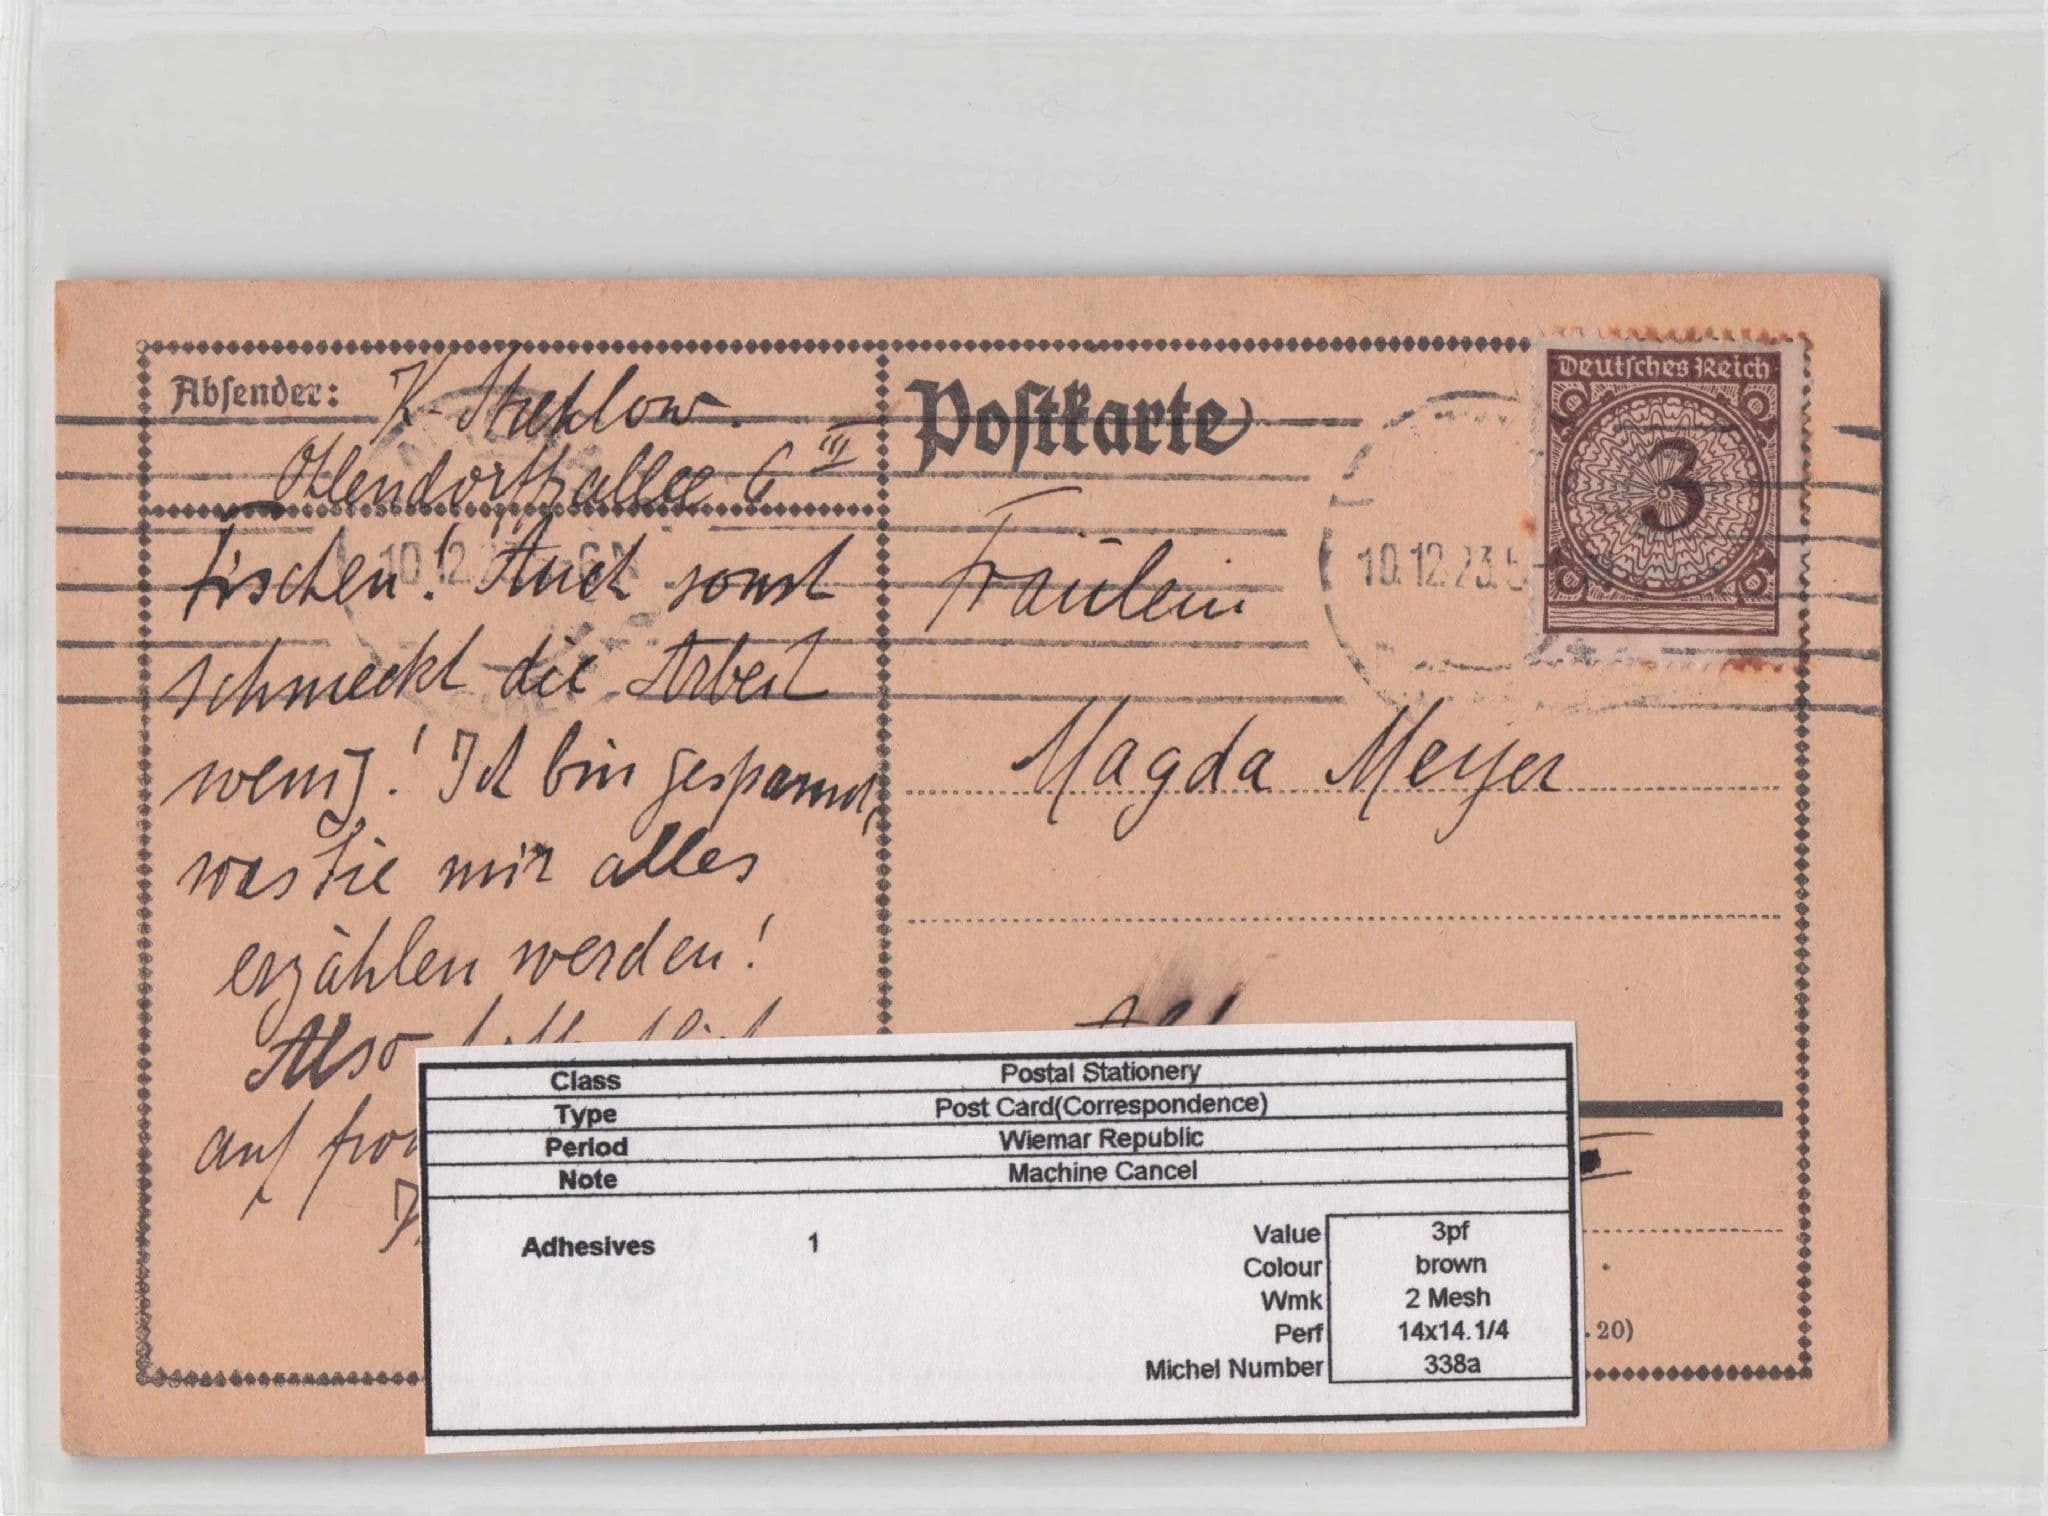 Absender: K. Strehlow.
Ollendorffsallee 6 III
tischen! Auch sonst
schmeckt die Arbeit
wenig! Ich bin gespannt,
was Sie mir alles
erzählen werden!
Also
auf
Postkarte
Deutsches Reich
3
10.12.23.5
10.12.2
Fräulein
Magda Meyer
Class Postal Stationery
Type Post Card(Correspondence)
Period Wiemar Republic
Note Machine Cancel
Adhesives 1
Value 3pf
Colour brown
Wmk 2 Mesh
Perf 14x14.1/4
Michel Number 338a
.20)